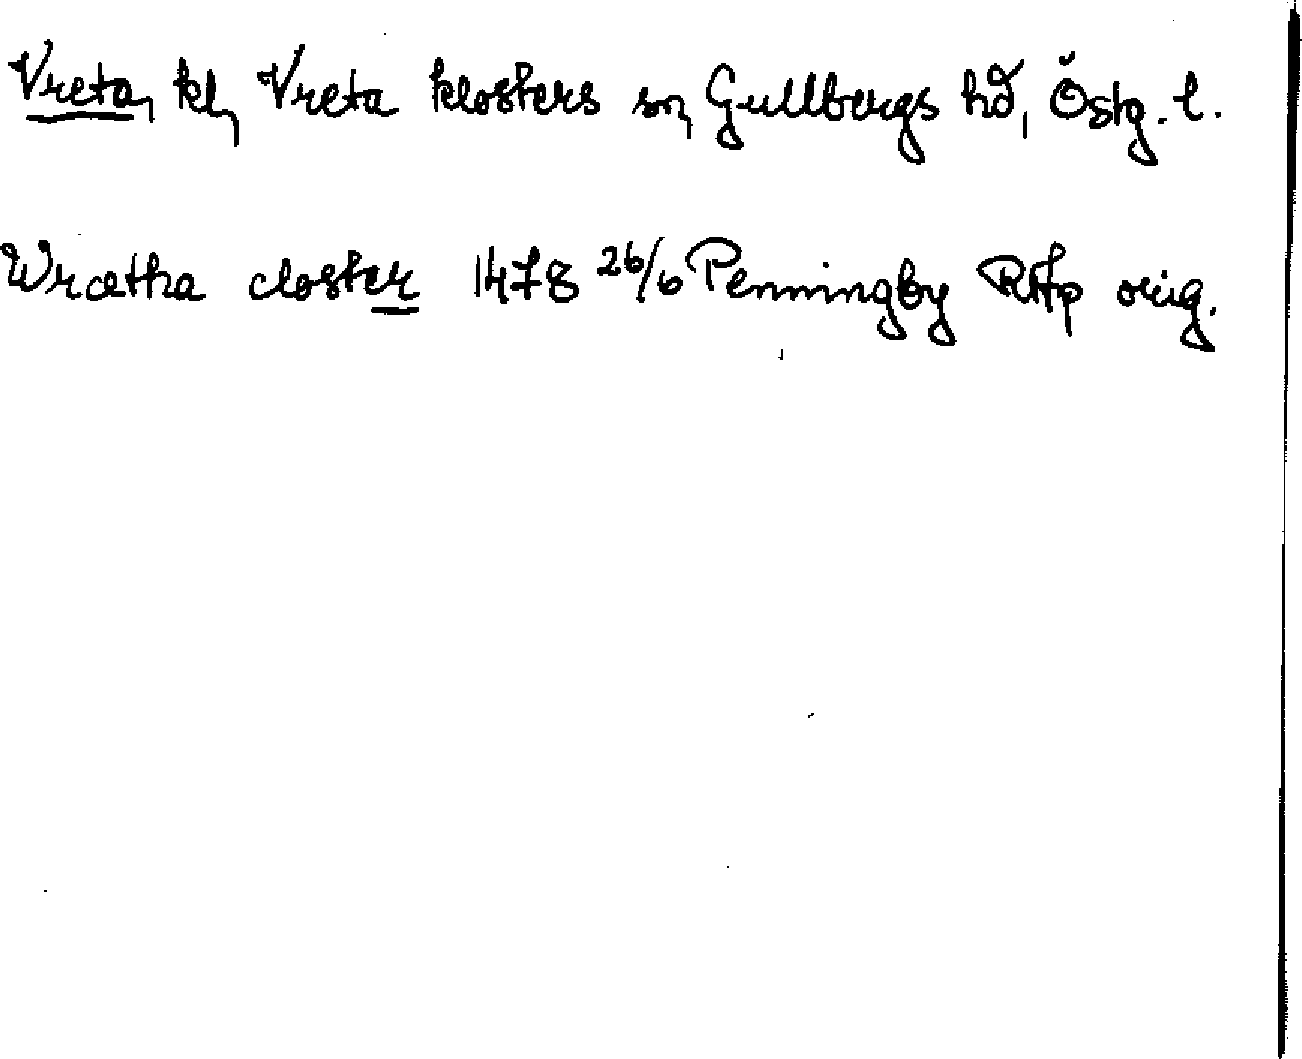 Vreta, kl, Vreta klosters sn, Gullbergs hd, Östg. l.
Wrætha closter 1478 26/6 Penningby RAp orig.